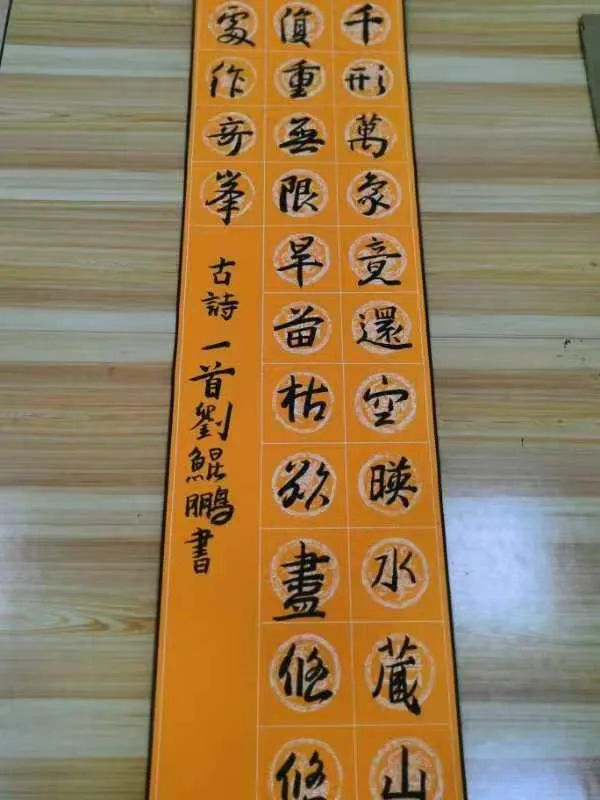 千形萬象竟還空暎水藏山
復重無限旱苗枯欲盡悠悠
處作奇峯
古詩一首劉鯤鵬書